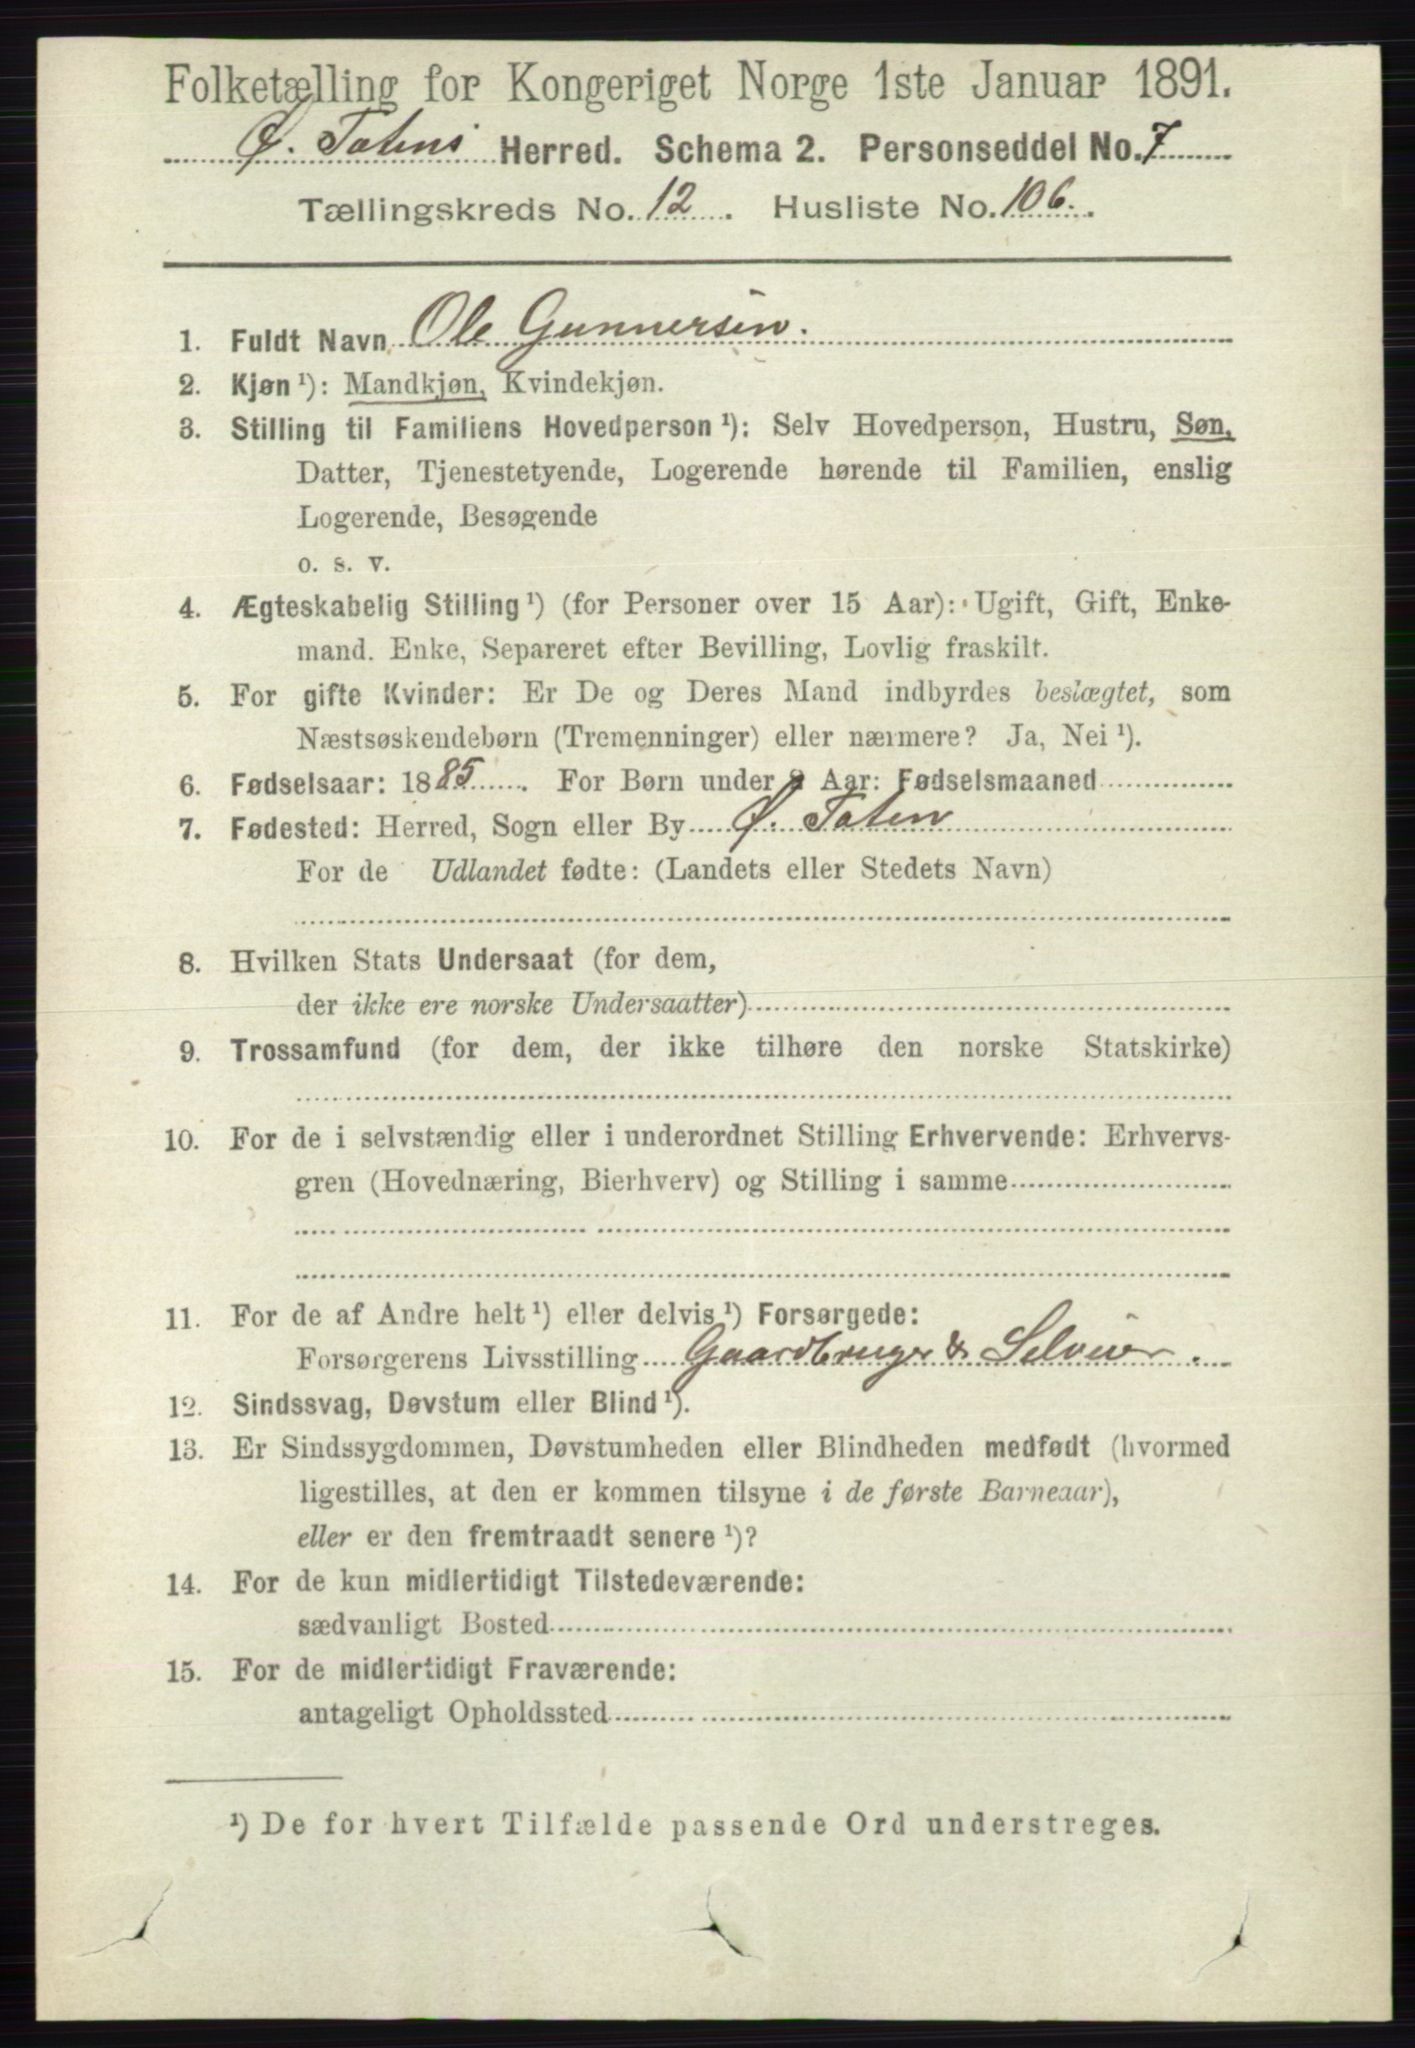 Folketælling for Kongeriget Norge 1ste Januar 1891.
Ø. Totens Herred. Schema 2. Personseddel No. 7
Tællingskreds No. 12. Husliste No. 106.
1. Fuldt Navn Ole Gunnersen.
2. Kjøn ¹): Mandkjøn, Kvindekjøn.
3. Stilling til Familiens Hovedperson ¹): Selv Hovedperson, Hustru, Søn,
Datter, Tjenestetyende, Logerende hørende til Familien, enslig
Logerende, Besøgende
o. s. v.
4. Ægteskabelig Stilling ¹) (for Personer over 15 Aar): Ugift, Gift, Enke-
mand. Enke, Separeret efter Bevilling, Lovlig fraskilt.
5. For gifte Kvinder: Er De og Deres Mand indbyrdes beslægtet, som
Næstsøskendebørn (Tremenninger) eller nærmere? Ja, Nei ¹).
6. Fødselsaar: 1885. For Børn under 2 Aar: Fødselsmaaned
7. Fødested: Herred, Sogn eller By Ø. Toten
For de Udlandet fødte: (Landets eller Stedets Navn)
8. Hvilken Stats Undersaat (for dem,
der ikke ere norske Undersaatter)
9. Trossamfund (for dem, der ikke tilhøre den norske Statskirke)
10. For de i selvstændig eller i underordnet Stilling Erhvervende: Erhvervs-
gren (Hovednæring, Bierhverv) og Stilling i samme
11. For de af Andre helt ¹) eller delvis ¹) Forsørgede:
Forsørgerens Livsstilling Gaardbruger & Selveier.
12. Sindssvag, Døvstum eller Blind ¹).
13. Er Sindssygdommen, Døvstumheden eller Blindheden medfødt (hvormed
ligestilles, at den er kommen tilsyne i de første Barneaar),
eller er den fremtraadt senere ¹)?
14. For de kun midlertidigt Tilstedeværende:
sædvanligt Bosted
15. For de midlertidigt Fraværende:
antageligt Opholdssted
¹) De for hvert Tilfælde passende Ord understreges.